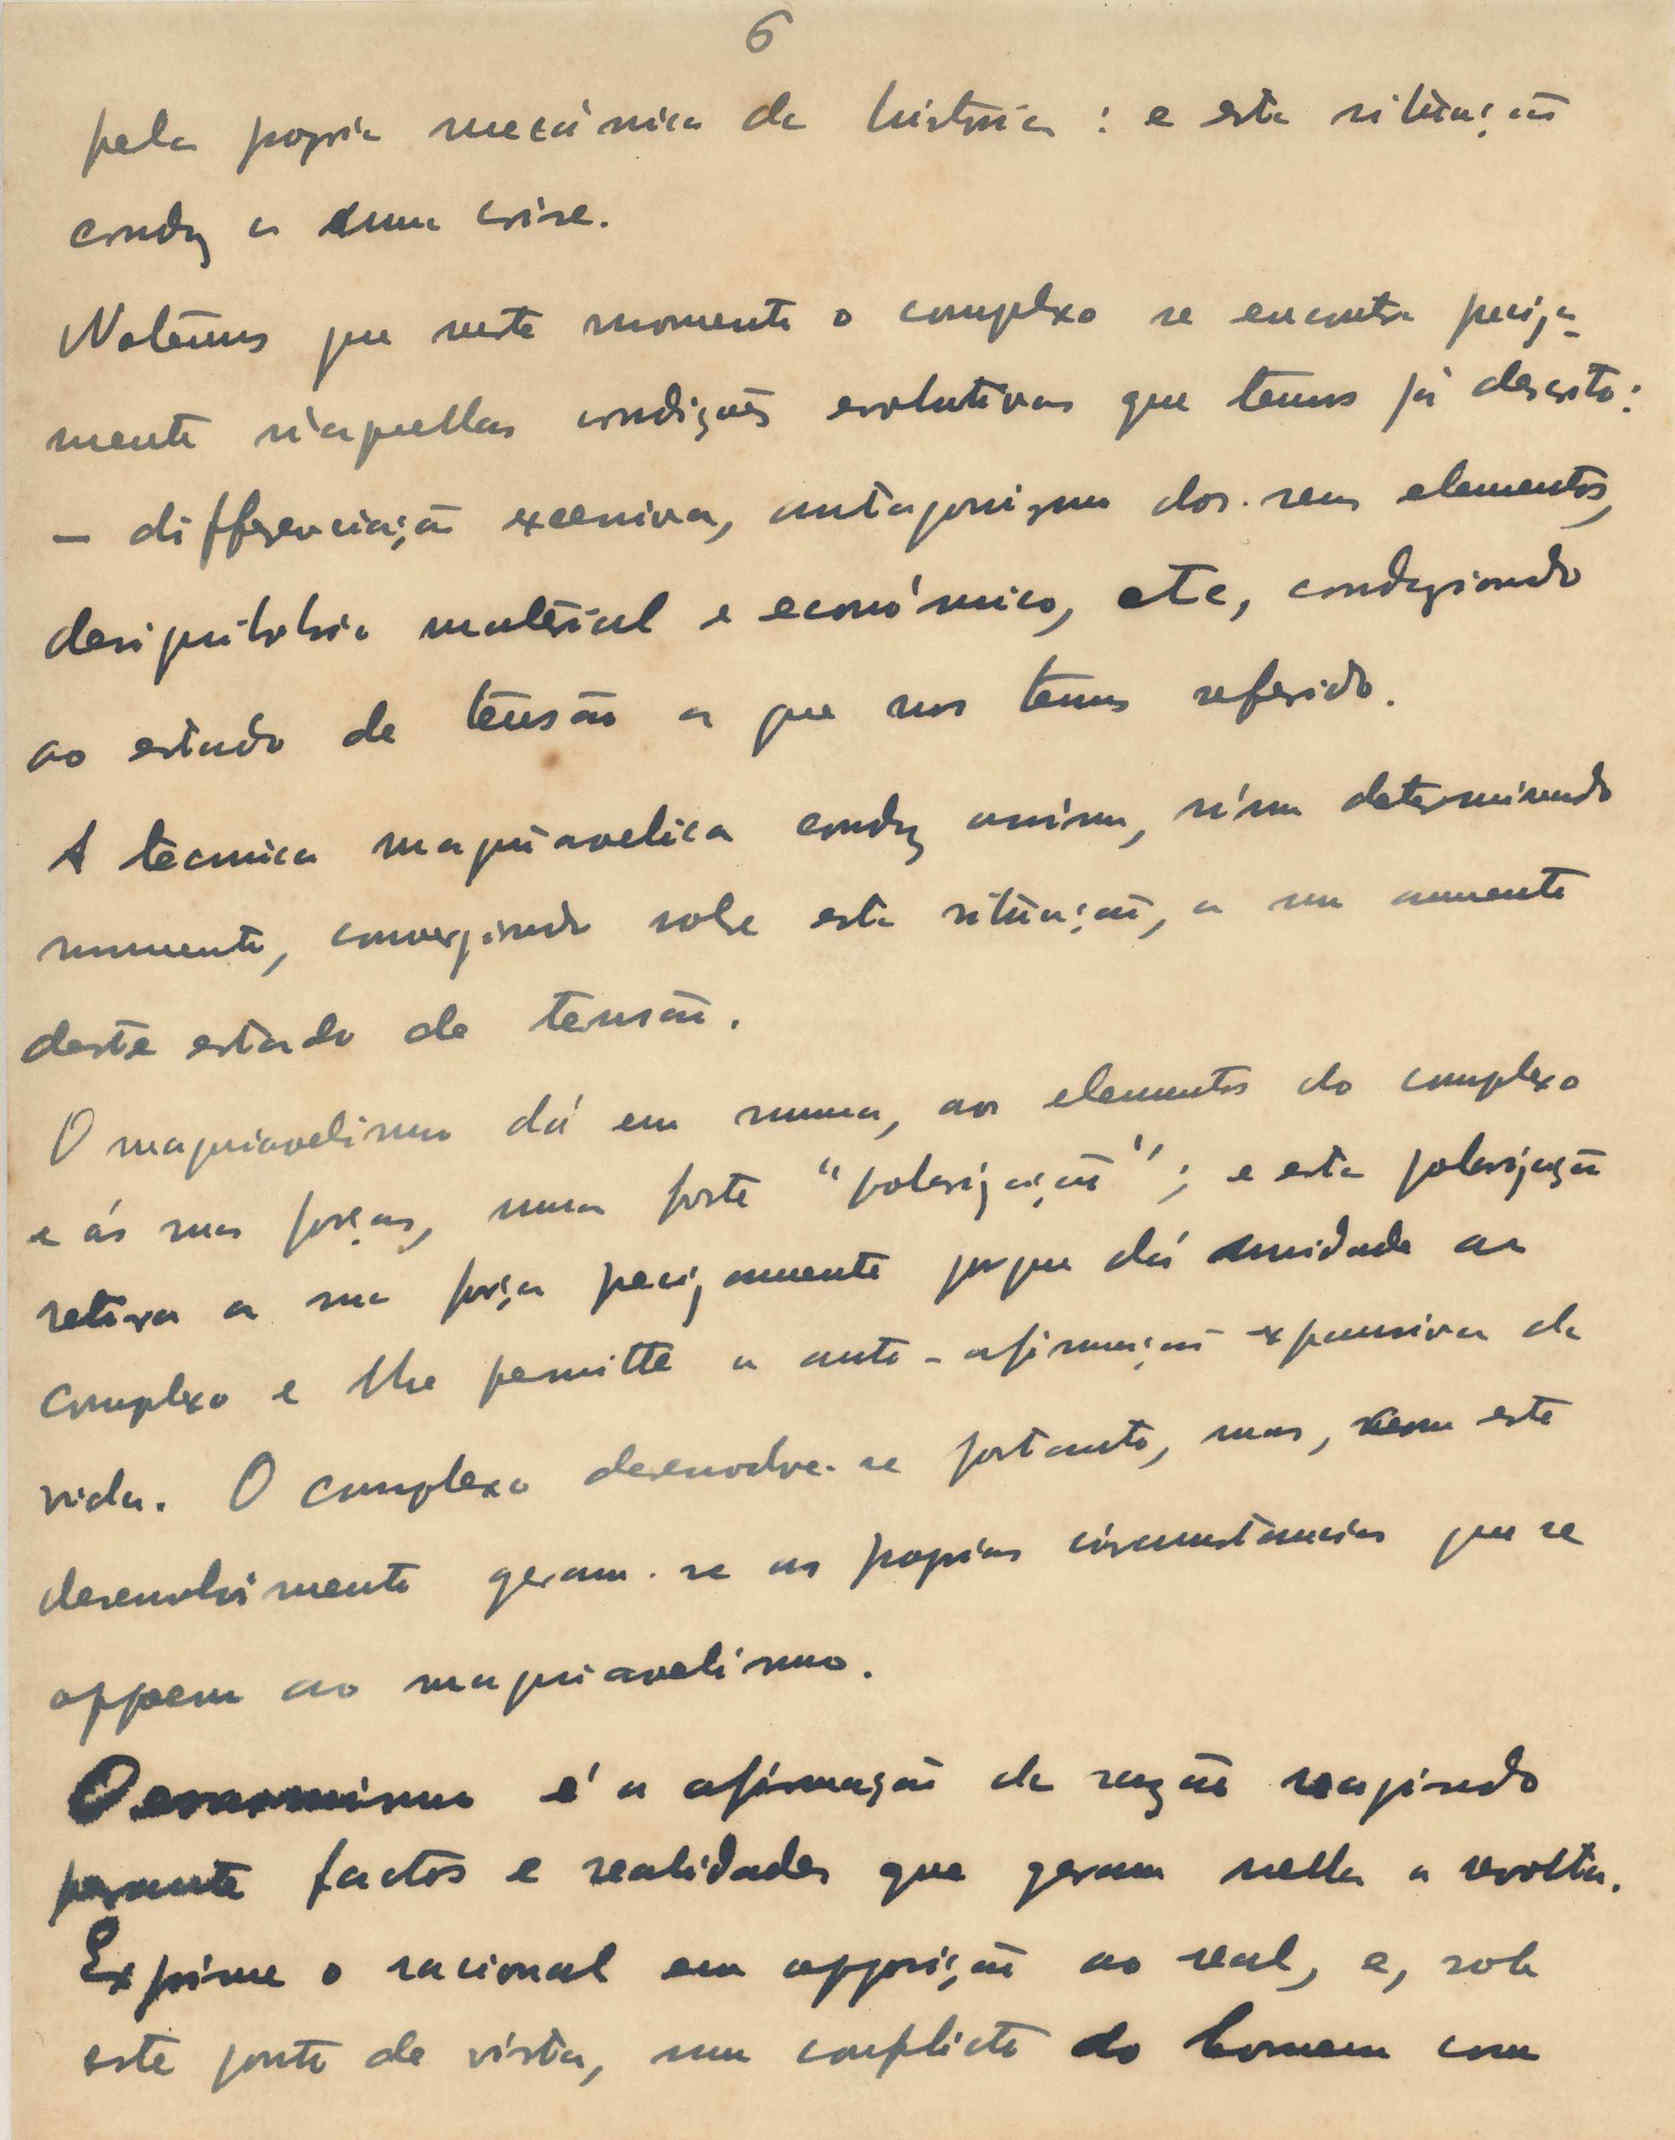 6
pela propria mecânica da história : e esta situação
conduz a uma crise.
Notemos que neste momento o complexo se encontra preciza-
mente n'aquellas condições evolutivas que temos já descrito:
— differenciação excessiva, antagonismo dos seus elementos,
desiquilibrio material e económico, etc, conduzindo
ao estado de tensão a que nos temos referido.
A tecnica maquiavelica conduz assim, n'um determinado
momento, convergindo sobre esta situação, a um aumento
deste estado de tensão.
O maquiavelismo dá em summa, aos elementos do complexo
e ás suas forças, uma forte "polarização"; e esta polarização
retira a sua força precizamente porque dá unidade ao
complexo e lhe permitte a auto-afirmação expansiva da
vida. O complexo desenvolve-se portanto, mas, com este
desenvolvimento geram-se as proprias circumstancias que se
oppoem ao maquiavelismo.
O erasmismo é a afirmação da razão reagindo
perante factos e realidades que geram nella a revolta.
Exprime o racional em opposição ao real, e, sob
este ponto de vista, um conflicto do homem com